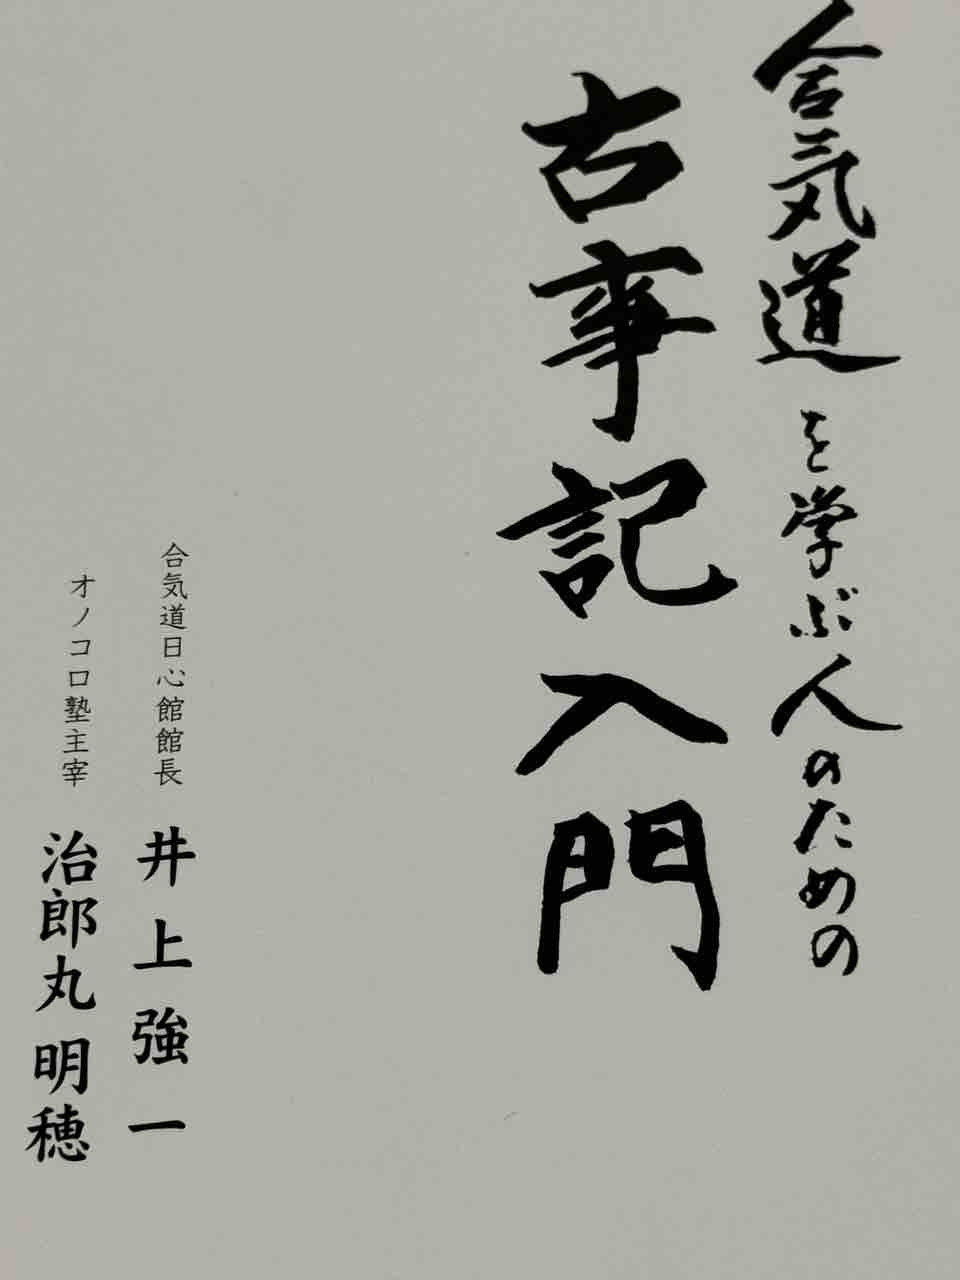 合気道を学ぶ人のための
古事記入門
合気道日心館館長 井上強一
オノコロ塾主宰 治郎丸明穂